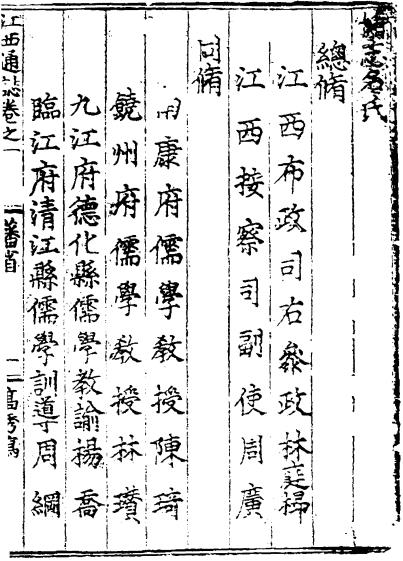 脩志名氏
總脩
江西布政司右叅政林庭㭿
江西按察司副使周廣
同脩
南康府儒學教授陳琦
饒州府儒學教授林瓚
九江府德化縣儒學教諭楊喬
臨江府清江縣儒學訓導周綱
江西通誌卷之一
藩省
一